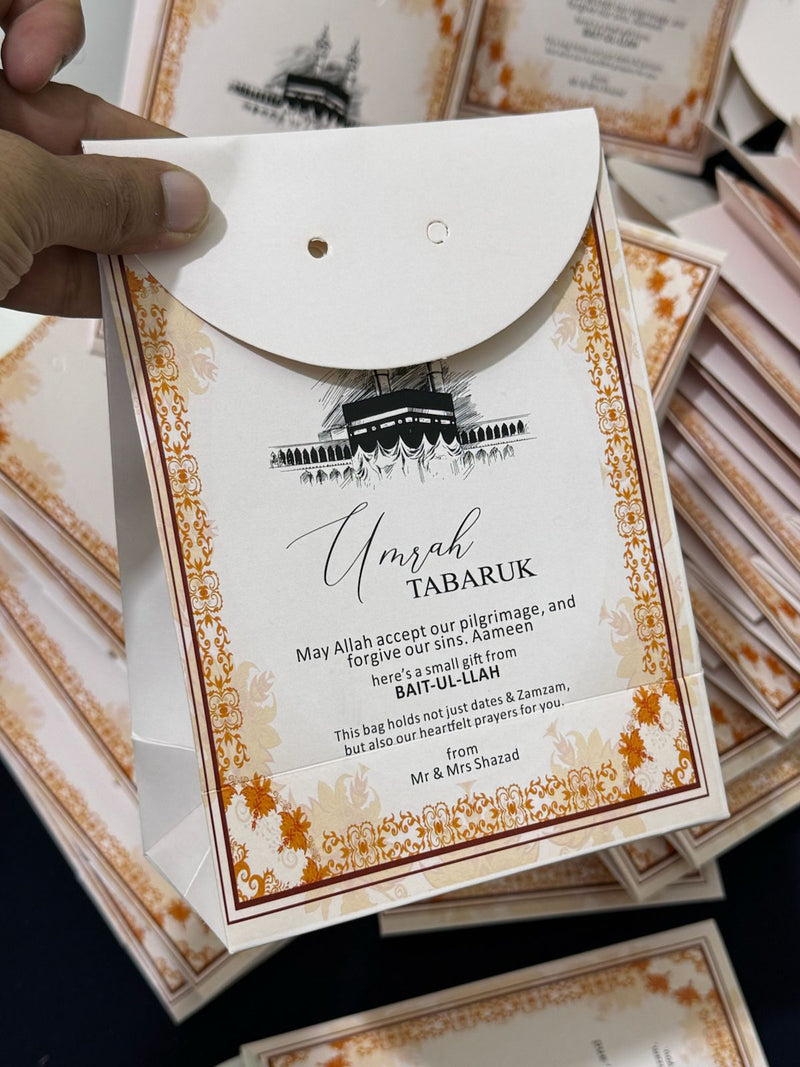 Umrah
TABARUK
May Allah accept our pilgrimage, and
forgive our sins. Aameen
here's a small gift from
BAIT-UL-LLAH
This bag holds not just dates & Zamzam,
but also our heartfelt prayers for you.
from
Mr & Mrs Shazad
BAIT-UL-LLAH